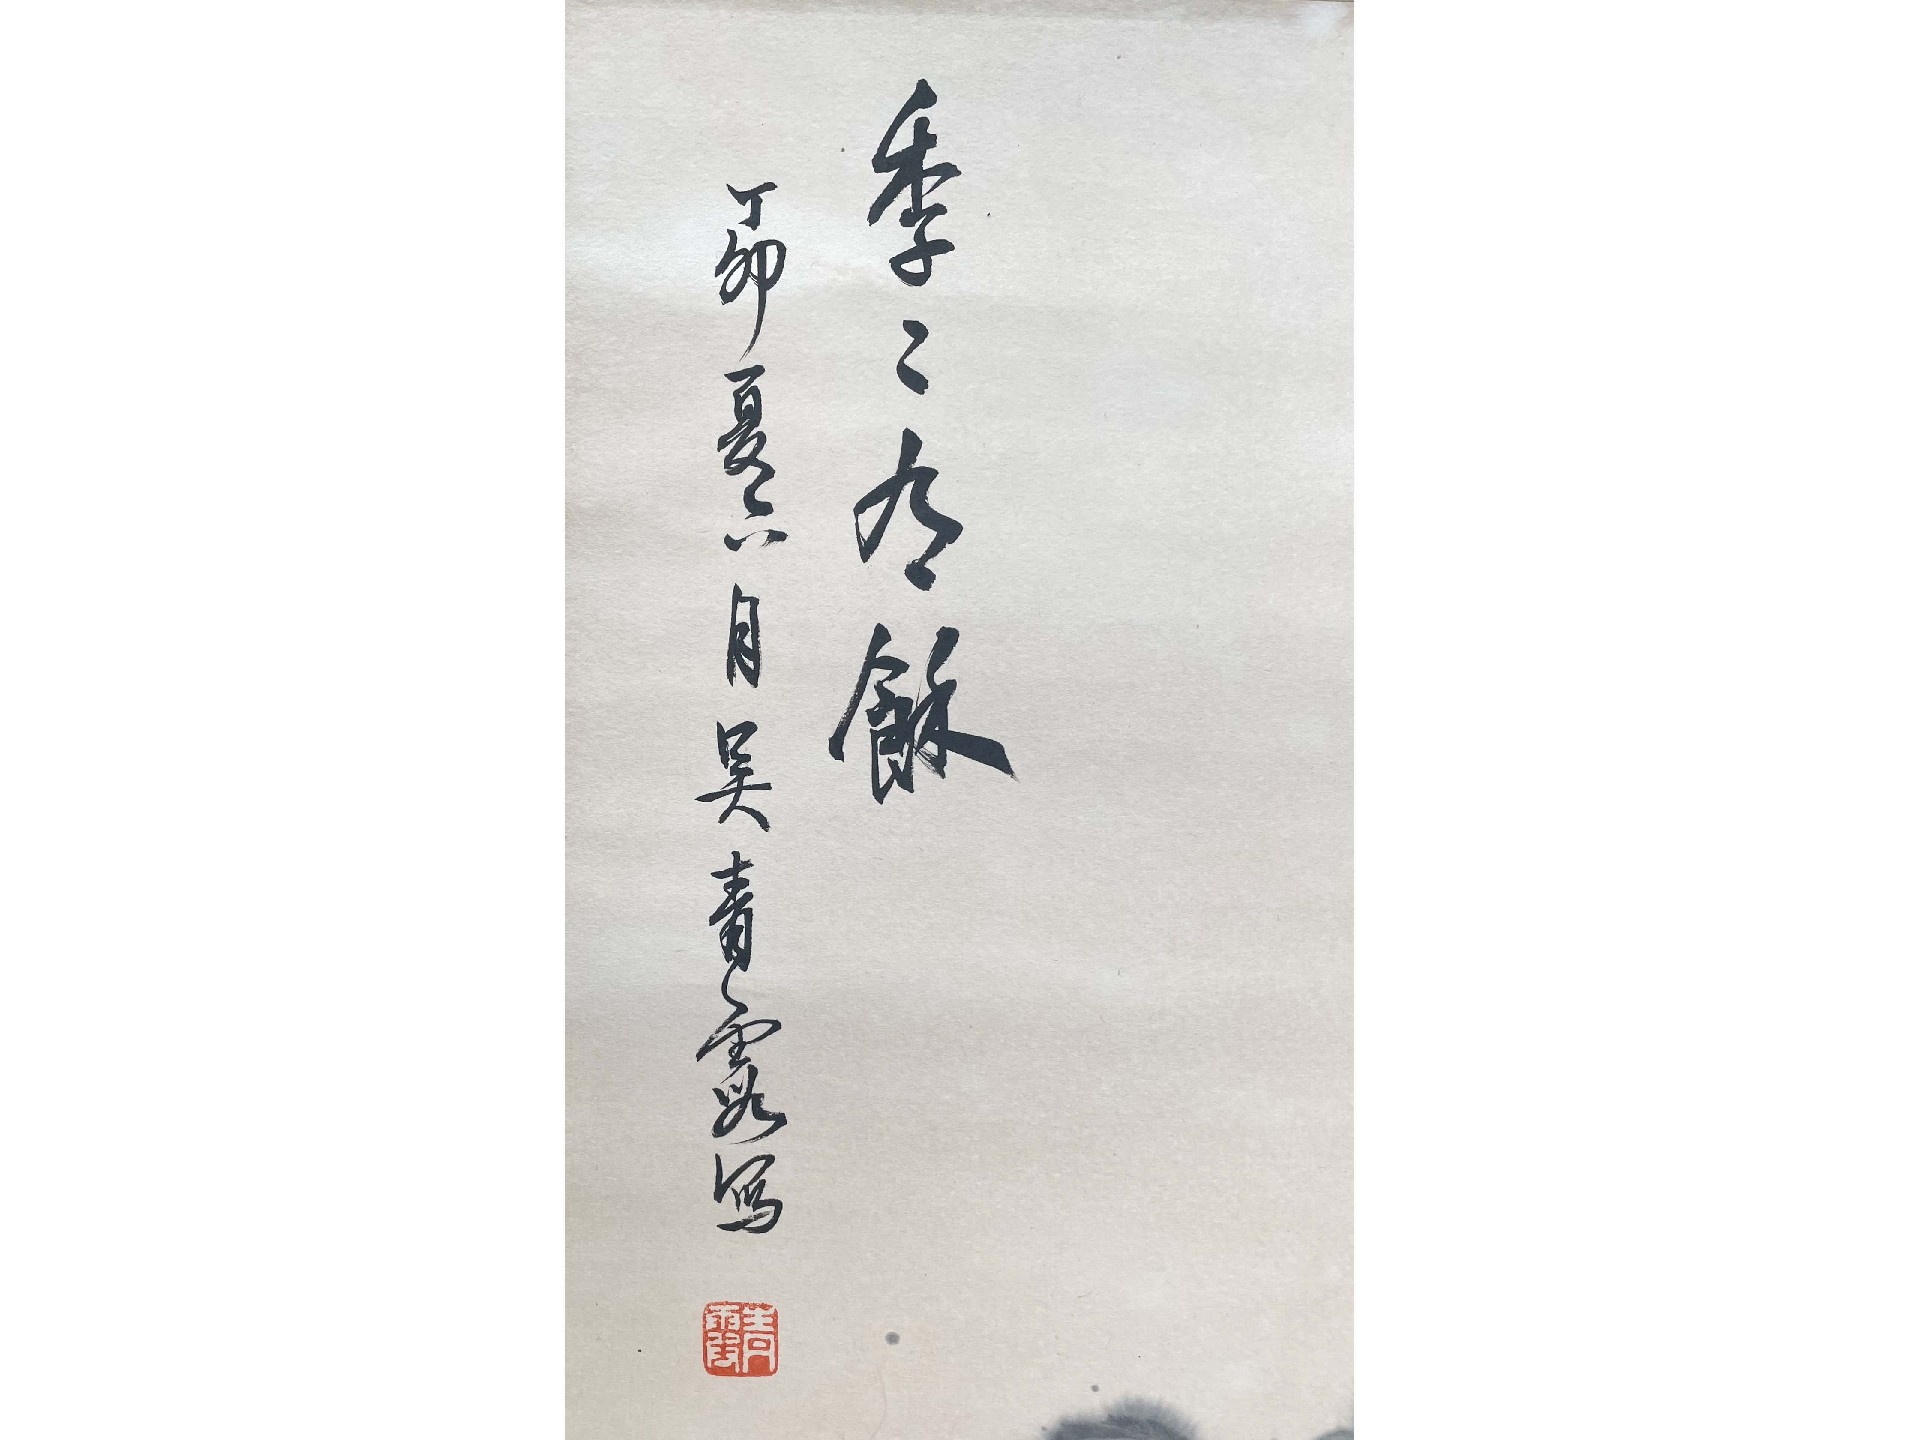 季々有餘
丁卯夏六月吴青霞写
青霞